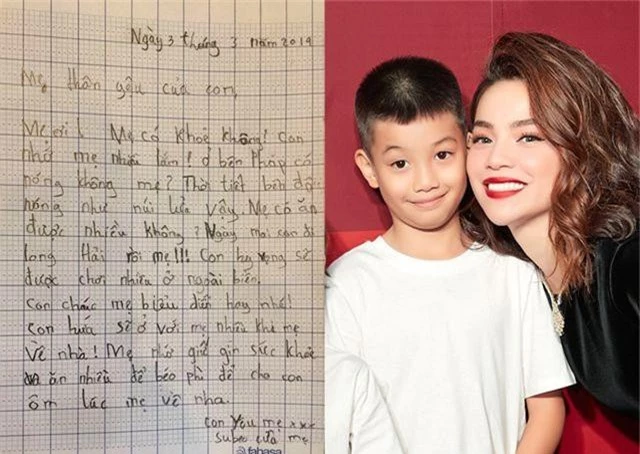 Ngày 3 tháng 3 năm 2019
Mẹ thân yêu của con,
Mẹ ơi! Mẹ có khoẻ không! Con
nhớ mẹ nhiều lắm! ở bên Pháp có
nóng không mẹ? Thời tiết bên đây
nóng như núi lửa vậy. Mẹ có ăn
được nhiều không? Ngày mai con đi
Long Hải rồi mẹ!!! Con hy vọng sẽ
được chơi nhiều ở ngoài biển.
Con chúc mẹ biểu diễn hay nhé!
Con hứa sẽ ở với mẹ nhiều khi mẹ
về nhà! Mẹ nhớ giữ gìn sức khoẻ
ăn nhiều để béo phì để cho con
ôm lúc mẹ về nha.
Con yêu mẹ xxx
Subeo của mẹ
@fahasa